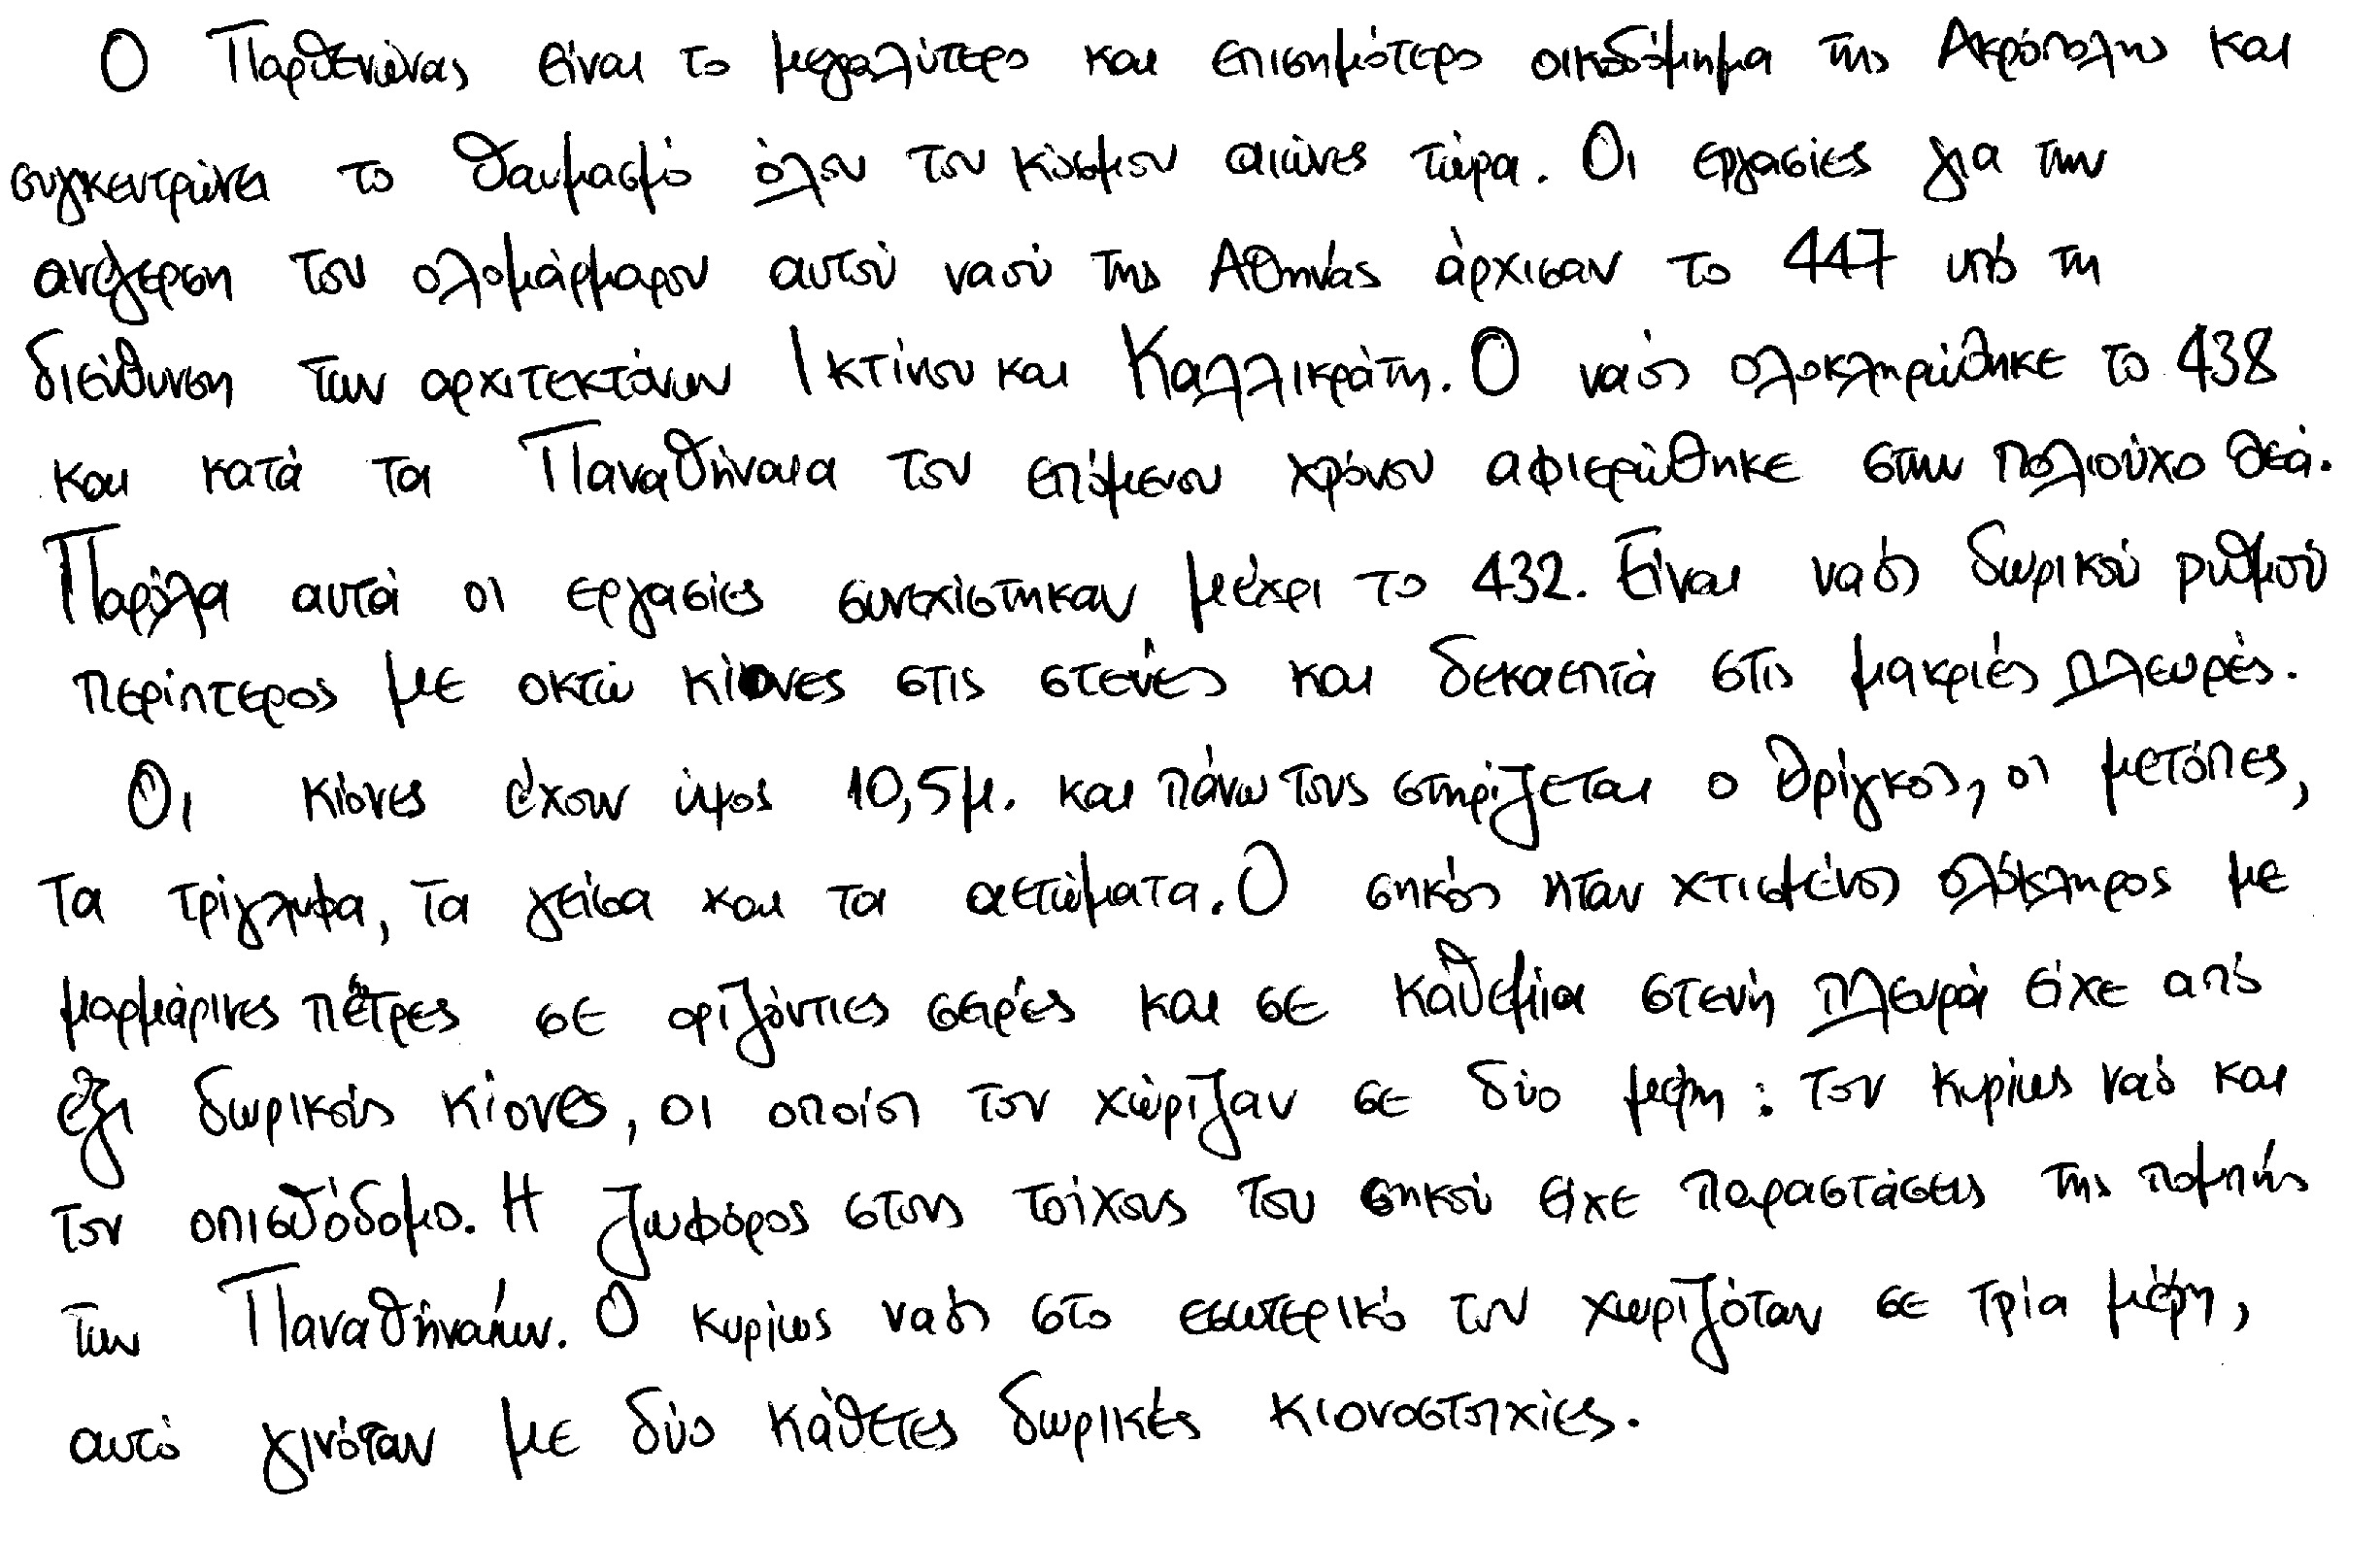 Ο Παρθενώνας είναι το μεγαλύτερο και επισημότερο οικοδόμημα της Ακρόπολης και
συγκεντρώνει το θαυμασμό όλου του κόσμου αιώνες τώρα. Οι εργασίες για την
ανέγερση του ολομάρμαρου αυτού ναού της Αθηνάς άρχισαν το 447 υπό τη
διεύθυνση των αρχιτεκτόνων Ικτίνου και Καλλικράτη. Ο ναός ολοκληρώθηκε το 438
και κατά τα Παναθήναια του επόμενου χρόνου αφιερώθηκε στην πολιούχο θεά.
Παρόλα αυτά οι εργασίες συνεχίστηκαν μέχρι το 432. Είναι ναός δωρικού ρυθμού
περίπτερος με οκτώ κίονες στις στενές και δεκαεπτά στις μακριές πλευρές.
Οι κίονες έχουν ύψος 10,5μ. και πάνω τους στηρίζεται ο θρίγκος, οι μετόπες,
τα τρίγλυφα, τα γείσα και τα αετώματα. Ο σηκός ήταν χτισμένος ολόκληρος με
μαρμάρινες πέτρες σε οριζόντιες σειρές και σε καθεμία στενή πλευρά είχε από
έξι δωρικούς κίονες, οι οποίοι τον χώριζαν σε δύο μέρη: τον κυρίως ναό και
τον οπισθόδομο. Η ζωφόρος στους τοίχους του σηκού είχε παραστάσεις της πομπής
των Παναθήναίων. Ο κυρίως ναός στο εσωτερικό του χωριζόταν σε τρία μέρη,
αυτό γινόταν με δύο κάθετες δωρικές κιονοστοιχίες.